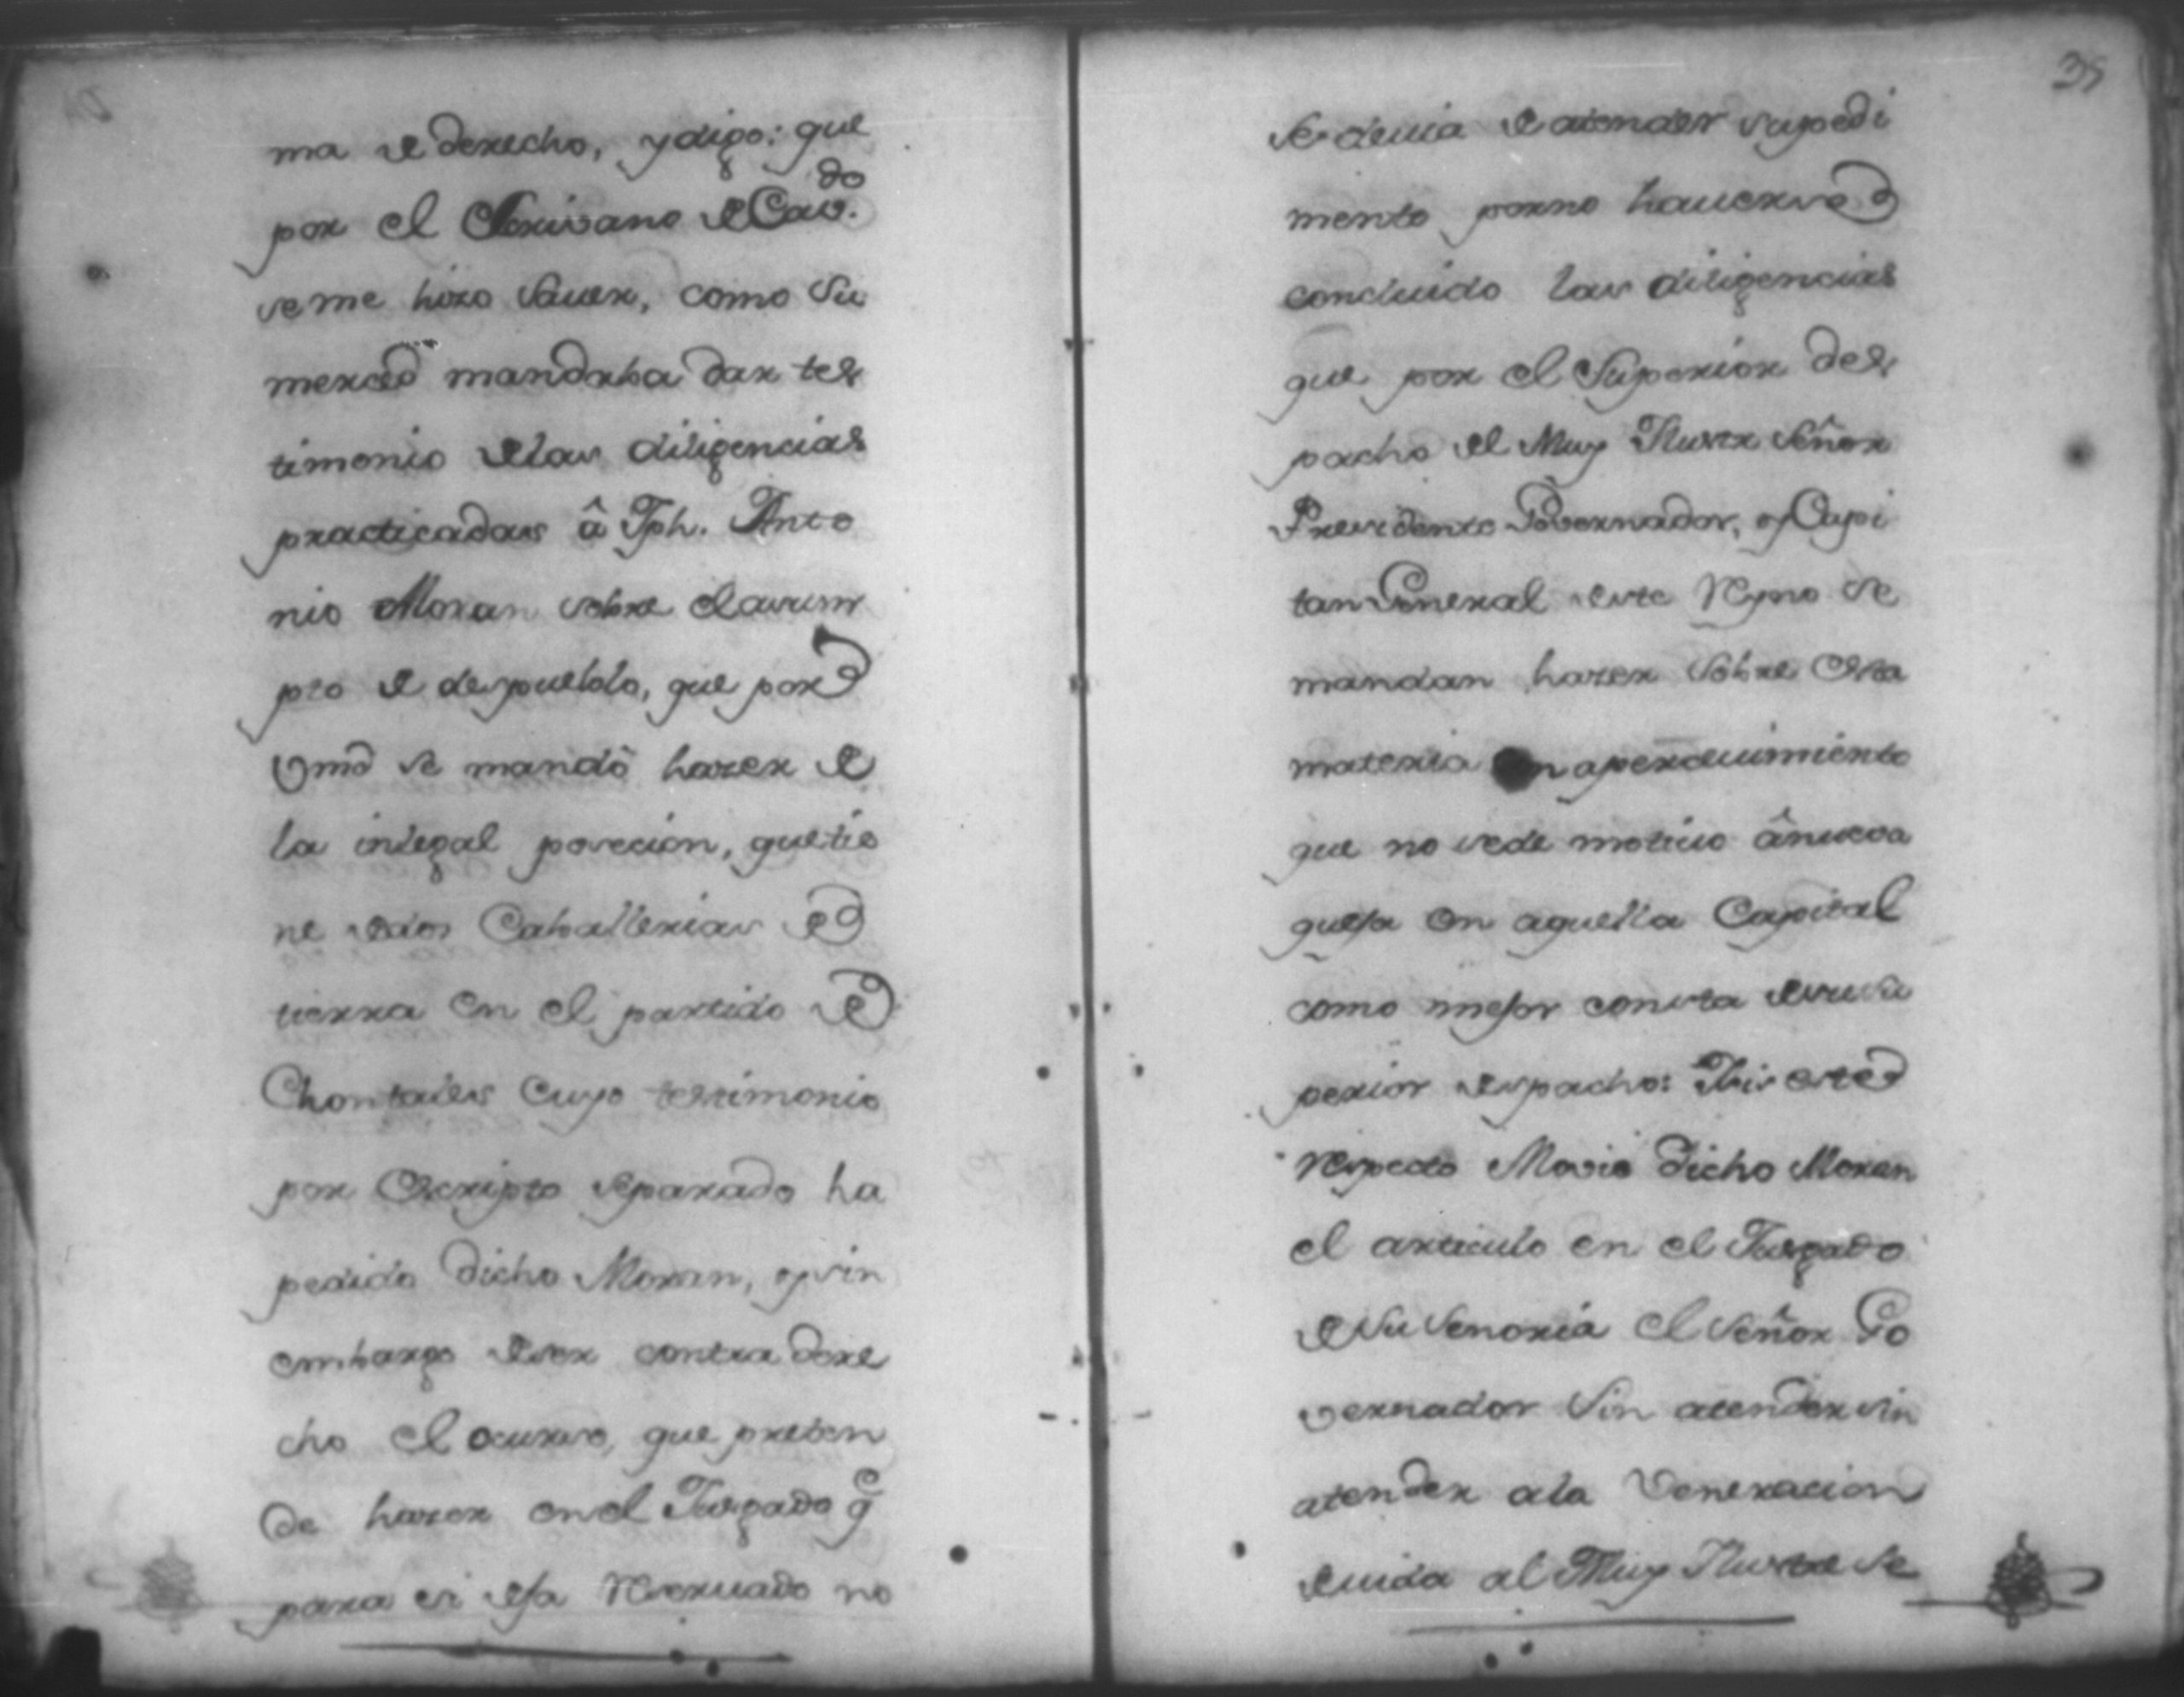 ma de derecho, y digo: que
por el Escrivano de Cav.do
se me hizo Saver, como Su
merced mandaba dar tes
timonio de las diligencias
practicadas â Jph. Anto
nio Moran sobre el asum
pto de despueblo, que por
Vmd se mandô hazer de
la integal posecion, que tie
ne de dos Caballerias de
tierra en el partido de
Chontales Cuyo testimonio
por Escripto separado ha
pedido dicho Moran, y sin
embargo de ser contra dere
cho el ocurso, que preten
de hazer en el Jusgado q̃e
para si deja Reservado no
35
Se devia de atender su pedi
mento por no haverse
concluido las diligencias
que por el Superior des
pacho del Muy Ilustre Señor
Presidente Governador, y Capi
tan General deste Reyno se
mandan hazer sobre esta
materia en apercevimiento
que no se de motivo â nueva
queja en aquella Capital
como mejor consta de su Su
perior despacho: Th este
Respecto Movio dicho Moran
el articulo en el Jusgado
de Su Senoria el Señor Go
vernador Sin atender sin
atender a la Veneracion
devida al Muy Ilustre Se